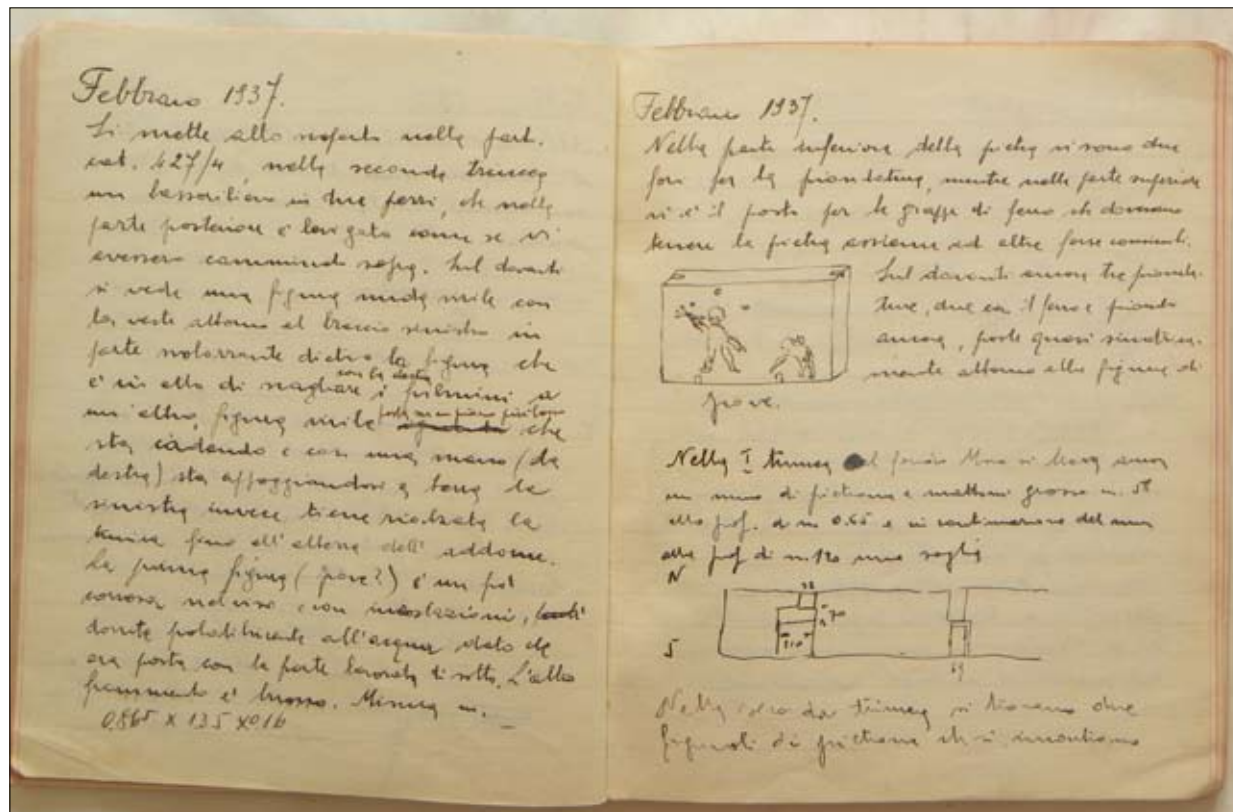 Febbraio 1937.
Si mette allo scoperto nella part.
cat. 427/4, nella seconda trincea
un bassorilievo in due pezzi, che nella
parte posteriore è levigata come se vi
avessero camminato sopra. Sul davanti
si vede una figura nuda virile con
la veste attorno al braccio sinistro in
parte svolazzante dietro la figura che
è in atto di scagliare con la destra i fulmini a
un'altra figura virile che
sta cadendo e con una mano (la
destra) sta appoggiandosi a terra la
sinistra invece tiene rialzata la
tunica fino all'altezza dell'addome.
La prima figura (Giove?) è un po'
corrosa nel viso e con incrostazioni,
dovute probabilmente all'acqua dato che
era posta con la parte lavorata di sotto. L'altro
frammento è Misura m.
0.865 x 1.35 x 016
Febbraio 1937.
Nella parte inferiore della pietra vi sono due
fori per la piombatura, mentre nella parte superiore
vi è il posto per le graffe di ferro che dovevano
tenere la pietra assieme ad altre forse combacianti.
Sul davanti ancora tre piomba-
ture, due con il ferro e piombo
ancora, poste quasi simetrica-
mente attorno alla figura di
Giove.
Nella I trincea si trova ancora
un muro di pietrame e mattoni grosso m.
alla prof. di m 0.65 e in continuazione del muro
alla prof di m. 1.20 una soglia
N
S
70
110
Nella seconda trincea si trovano due
di pietrame che si incontrano